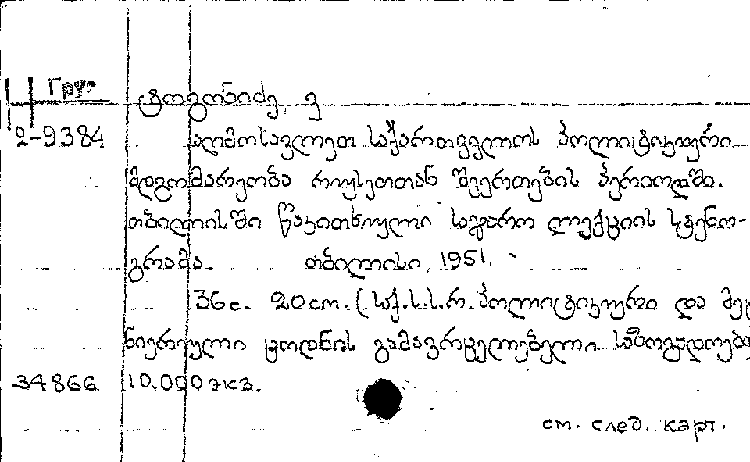 Груз.
ტოგონიძე, ვ
2-9384 აღმოსავლეთ საქართველოს პოლიტიკური
მდგომარეობა რუსეთთან შეერთების პერიოდში.
თბილისში წაკითხული საჯარო ლექციის სტენო-
გრამა. თბილისი, 1951.
36 с. 20 см. (სქ.ს.ს.რ. პოლიტიკური და მეც
ნიერული ცოდნის გამავრცელებელი საზოგადოება
34866 10.000 экз.
см. след. карт.